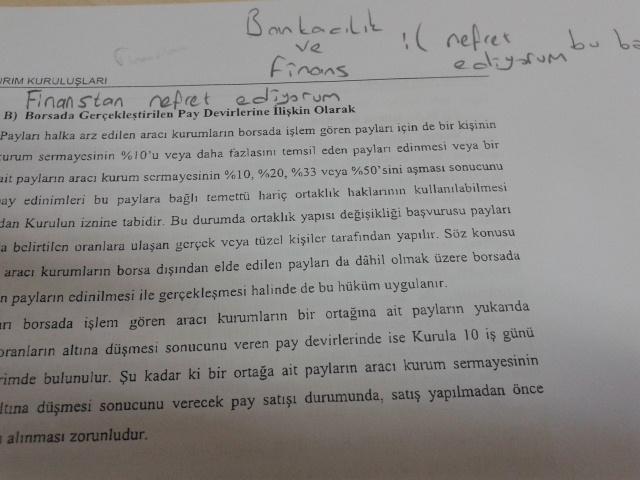 Bankacılık
ve
Finans
:( nefret
ediyorum
bu
Finanstan nefret ediyorum
B) Borsada Gerçekleştirilen Pay Devirlerine İlişkin Olarak
Payları halka arz edilen aracı kurumların borsada işlem gören payları için de bir kişinin
kurum sermayesinin %10'u veya daha fazlasını temsil eden payları edinmesi veya bir
ait payların aracı kurum sermayesinin %10, %20, %33 veya %50'sini aşması sonucunu
pay edinimleri bu paylara bağlı temettü hariç ortaklık haklarının kullanılabilmesi
Kurulun iznine tabidir. Bu durumda ortaklık yapısı değişikliği başvurusu payları
belirtilen oranlara ulaşan gerçek veya tüzel kişiler tarafından yapılır. Söz konusu
aracı kurumların borsa dışından elde edilen payları da dâhil olmak üzere borsada
payların edinilmesi ile gerçekleşmesi halinde de bu hüküm uygulanır.
borsada işlem gören aracı kurumların bir ortağına ait payların yukarıda
oranların altına düşmesi sonucunu veren pay devirlerinde ise Kurula 10 iş günü
bulunulur. Şu kadar ki bir ortağa ait payların aracı kurum sermayesinin
altına düşmesi sonucunu verecek pay satışı durumunda, satış yapılmadan önce
alınması zorunludur.